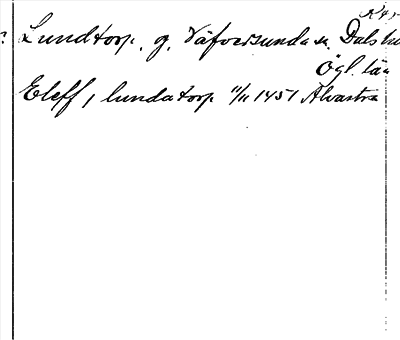 Lundtorp. g. Väversunda sn. Dals
Ögl. län
Eleff, lunda torp 11/11 1451 Alvastra